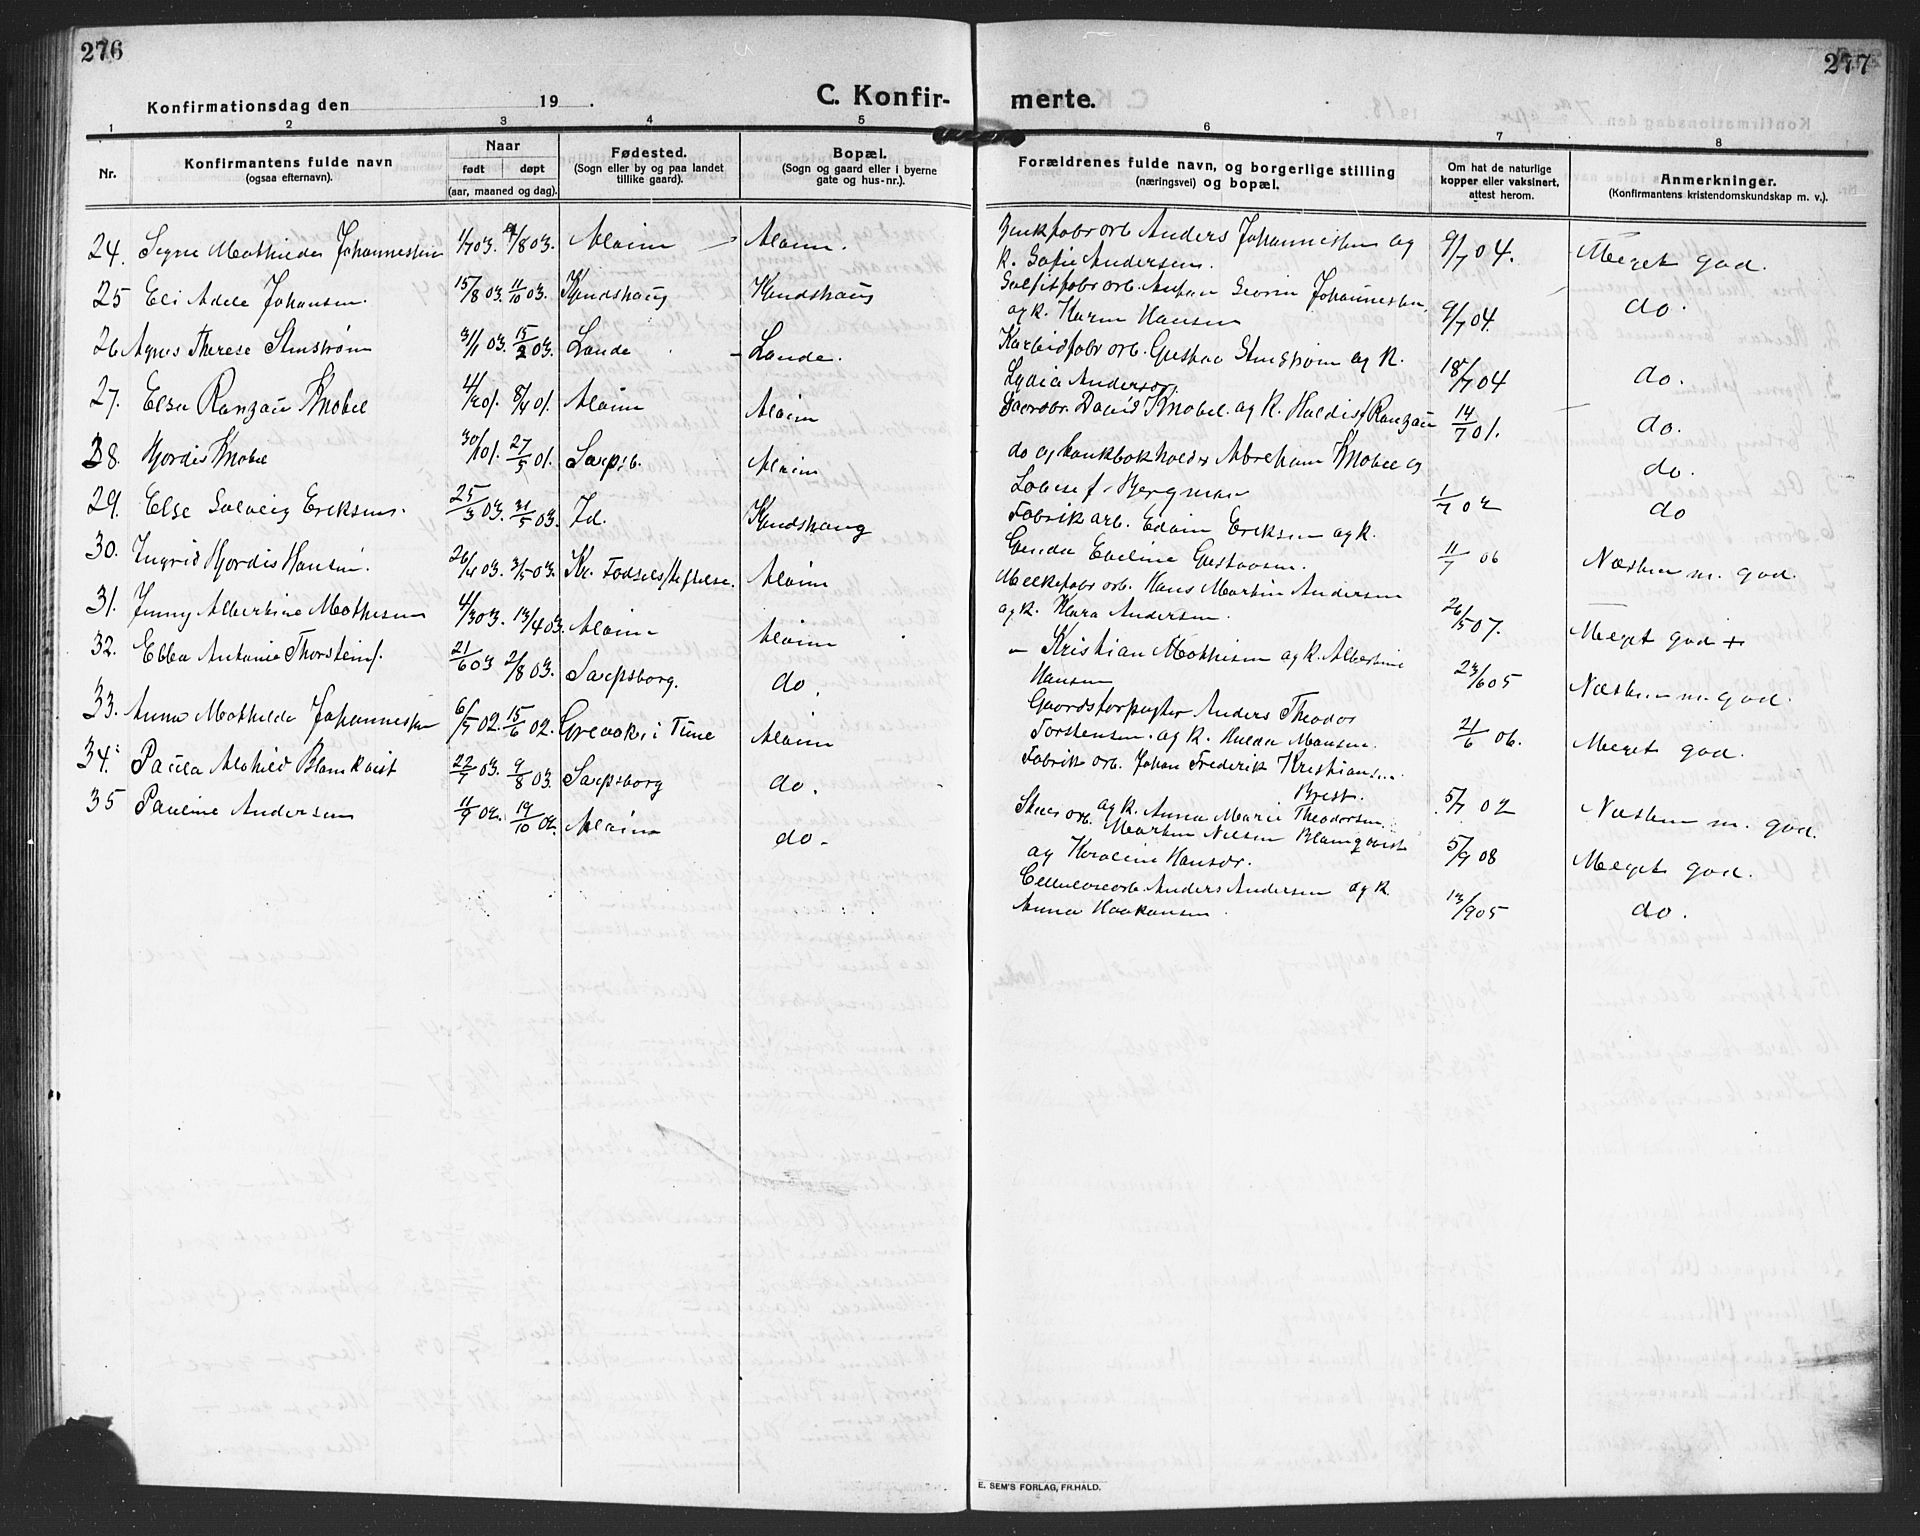 276
Konfirmationsdag den 19 .
C. Konfir-
1 2 3 4 5
Nr.
Konfirmantens fulde navn
(ogsaa efternavn).
Naar
født døpt
(aar, maaned og dag).
Fødested.
(Sogn eller by og paa landet
tillike gaard).
Bopæl.
(Sogn og gaard eller i byerne
gate og hus-nr.).
24. Signe Mathilde Johannessen 1/7 03. /8 03. Alvim Alvim.
25 Eli Adele Johansen. 15/8 03. 11/10 03. Kyndshaug Kyndshaug
26 Agnes Therese Stenstrøm 31/1 03. 15/2 03. Lande - Lande.
27. Elsa Ranzau Knobel 4/2 01. 8/4 01. Alvim Alvim
28. Hjordis Knobel 30/1 01. 27/5 01. Sarpsb. Alvim
29. Else Solveig Eriksen. 25/3 03. 31/5 03. Id. Kyndshaug
30. Ingrid Hjordis Hansen. 26/4 03. 3/5 03. Kr. Fødselsstiftelse. Alvim
31. Jenny Albertine Mathisen 4/3 03. 13/4 03. Alvim Alvim
32. Ebba Antonie Thorstens. 21/6 03 2/8 03. Sarpsborg. do.
33. Anna Mathilde Johannessen 6/5 02. 15/6 02. Greaaker i Tune Alvim
34. Paula Alvhild Blamkvist 22/7 03. 9/8 03. Sarpsborg do.
35 Pauline Andersen 11/9 02. 19/10 02. Alvim do.
277
merte.
6 7 8
Forældrenes fulde navn, og borgerlige stilling
(næringsvei) og bopæl.
Om hat de naturlige
kopper eller vaksinert,
attest herom.
Anmerkninger.
(Konfirmantens kristendomskundskap m. v.).
Zinkfabr arb Anders Johannessen og 9/7 04. Meget god.
k. Sofie Andersen.
Sulfitfabr arb. Anton Severin Johannessen, 9/7 04. do.
og k. Karen Hansen
Karbidfabr arb. Gustav Stenstrøm og k. 18/7 04 do.
Lydia Andersdr.
Gaardbr. David Knobel og k. Huldis f Ranzau 14/7 01. do.
do og bankbokholder Abraham Knobel og do.
Lovise f. Bergman
Fabrikarb. Edvin Eriksen og k. 1/7 02 do
Gerda Eveline Gustavsen. 11/7 06 Næsten m. god.
Melkefabr arb. Hans Martin Andersen
og k. Klara Andersen. 26/5 07. Meget god +
- Kristian Mathisen og k. Albertine
Hansen 23/6 05 Næsten m. god.
Gaardsforpagter Anders Theodor
Torstensen og k. Hulda Monsen. 21/6 06. Meget god.
Fabrik arb. Johan Frederik Kristiansen
Brest.
og k. Anna Marie Theodorsen. 5/7 02 Næsten m. god.
Martin Nilsen Blamqvist
og Karoline Hansdr. 5/9 08 Meget god.
Cellulosearb. Anders Andersen og k.
Anna Haakonsen 13/9 05 do.
E. SEM'S FORLAG, FR.HALD.